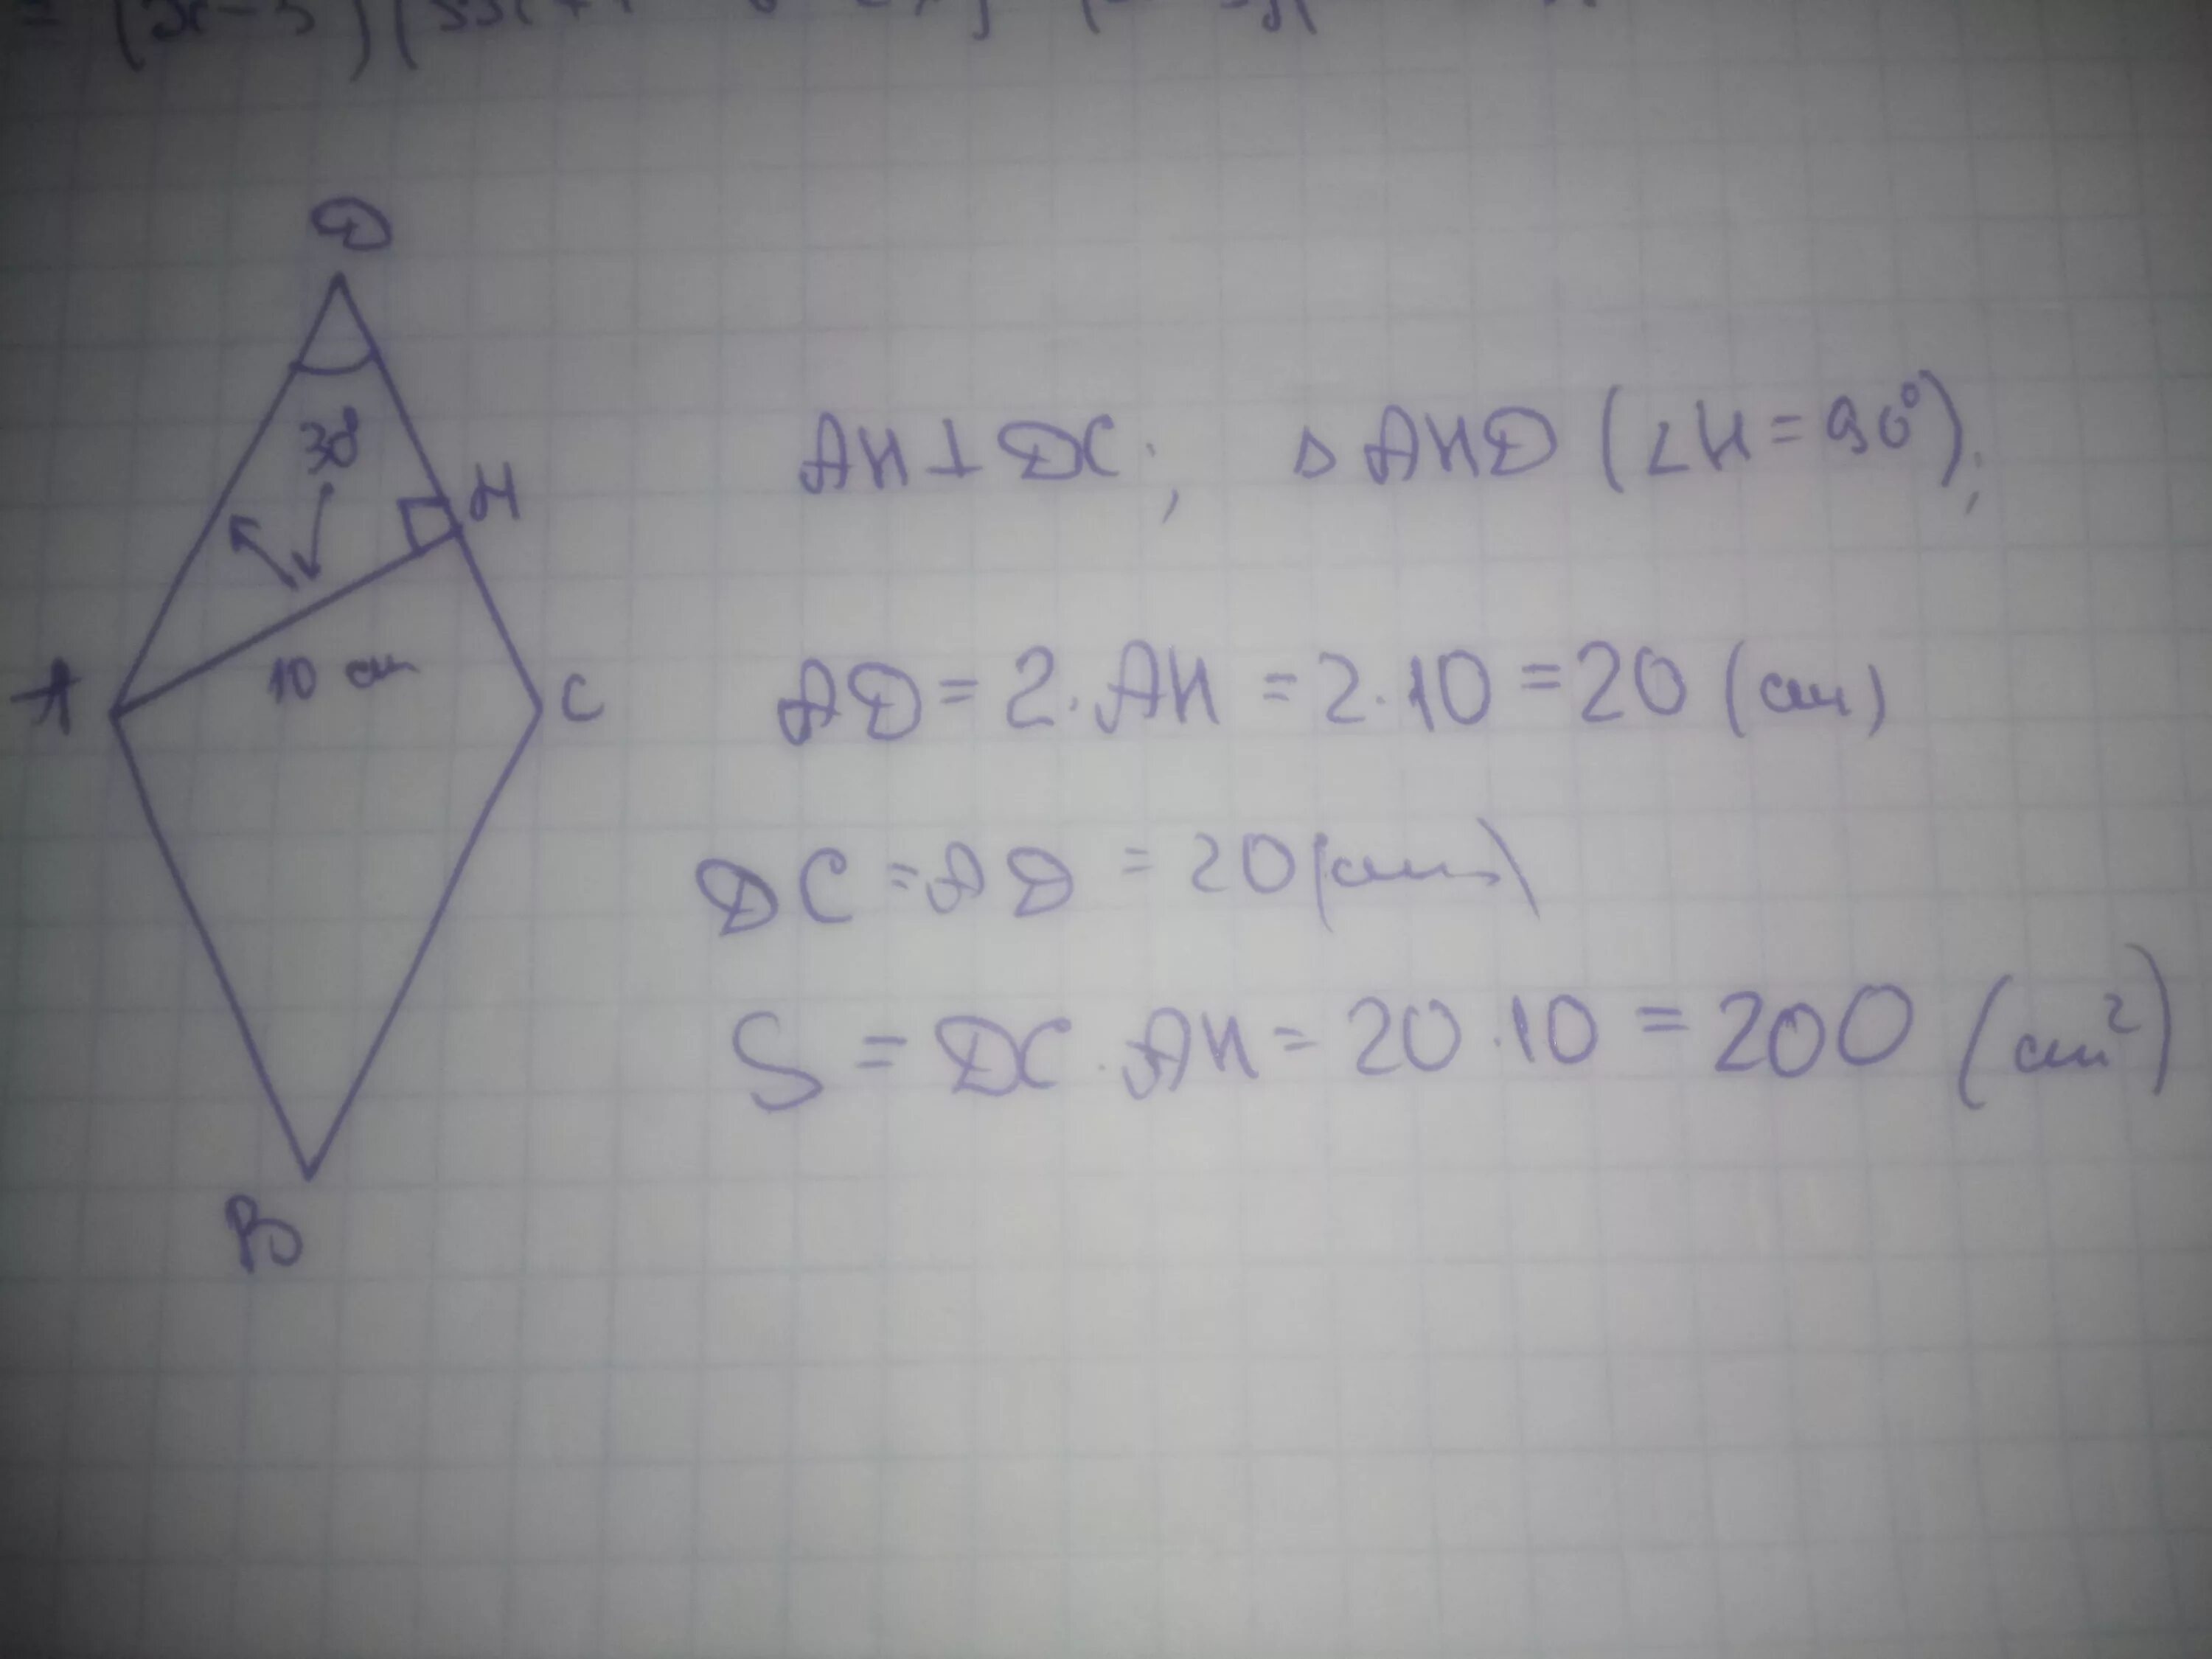 = (x-3)(
D
30°
H
A
10 см
C
B
AH⊥DC; △AHD (∠H=90°);
AD = 2·AH = 2·10 = 20 (см)
DC = AD = 20 (см)
S = DC·AH = 20·10 = 200 (см²)